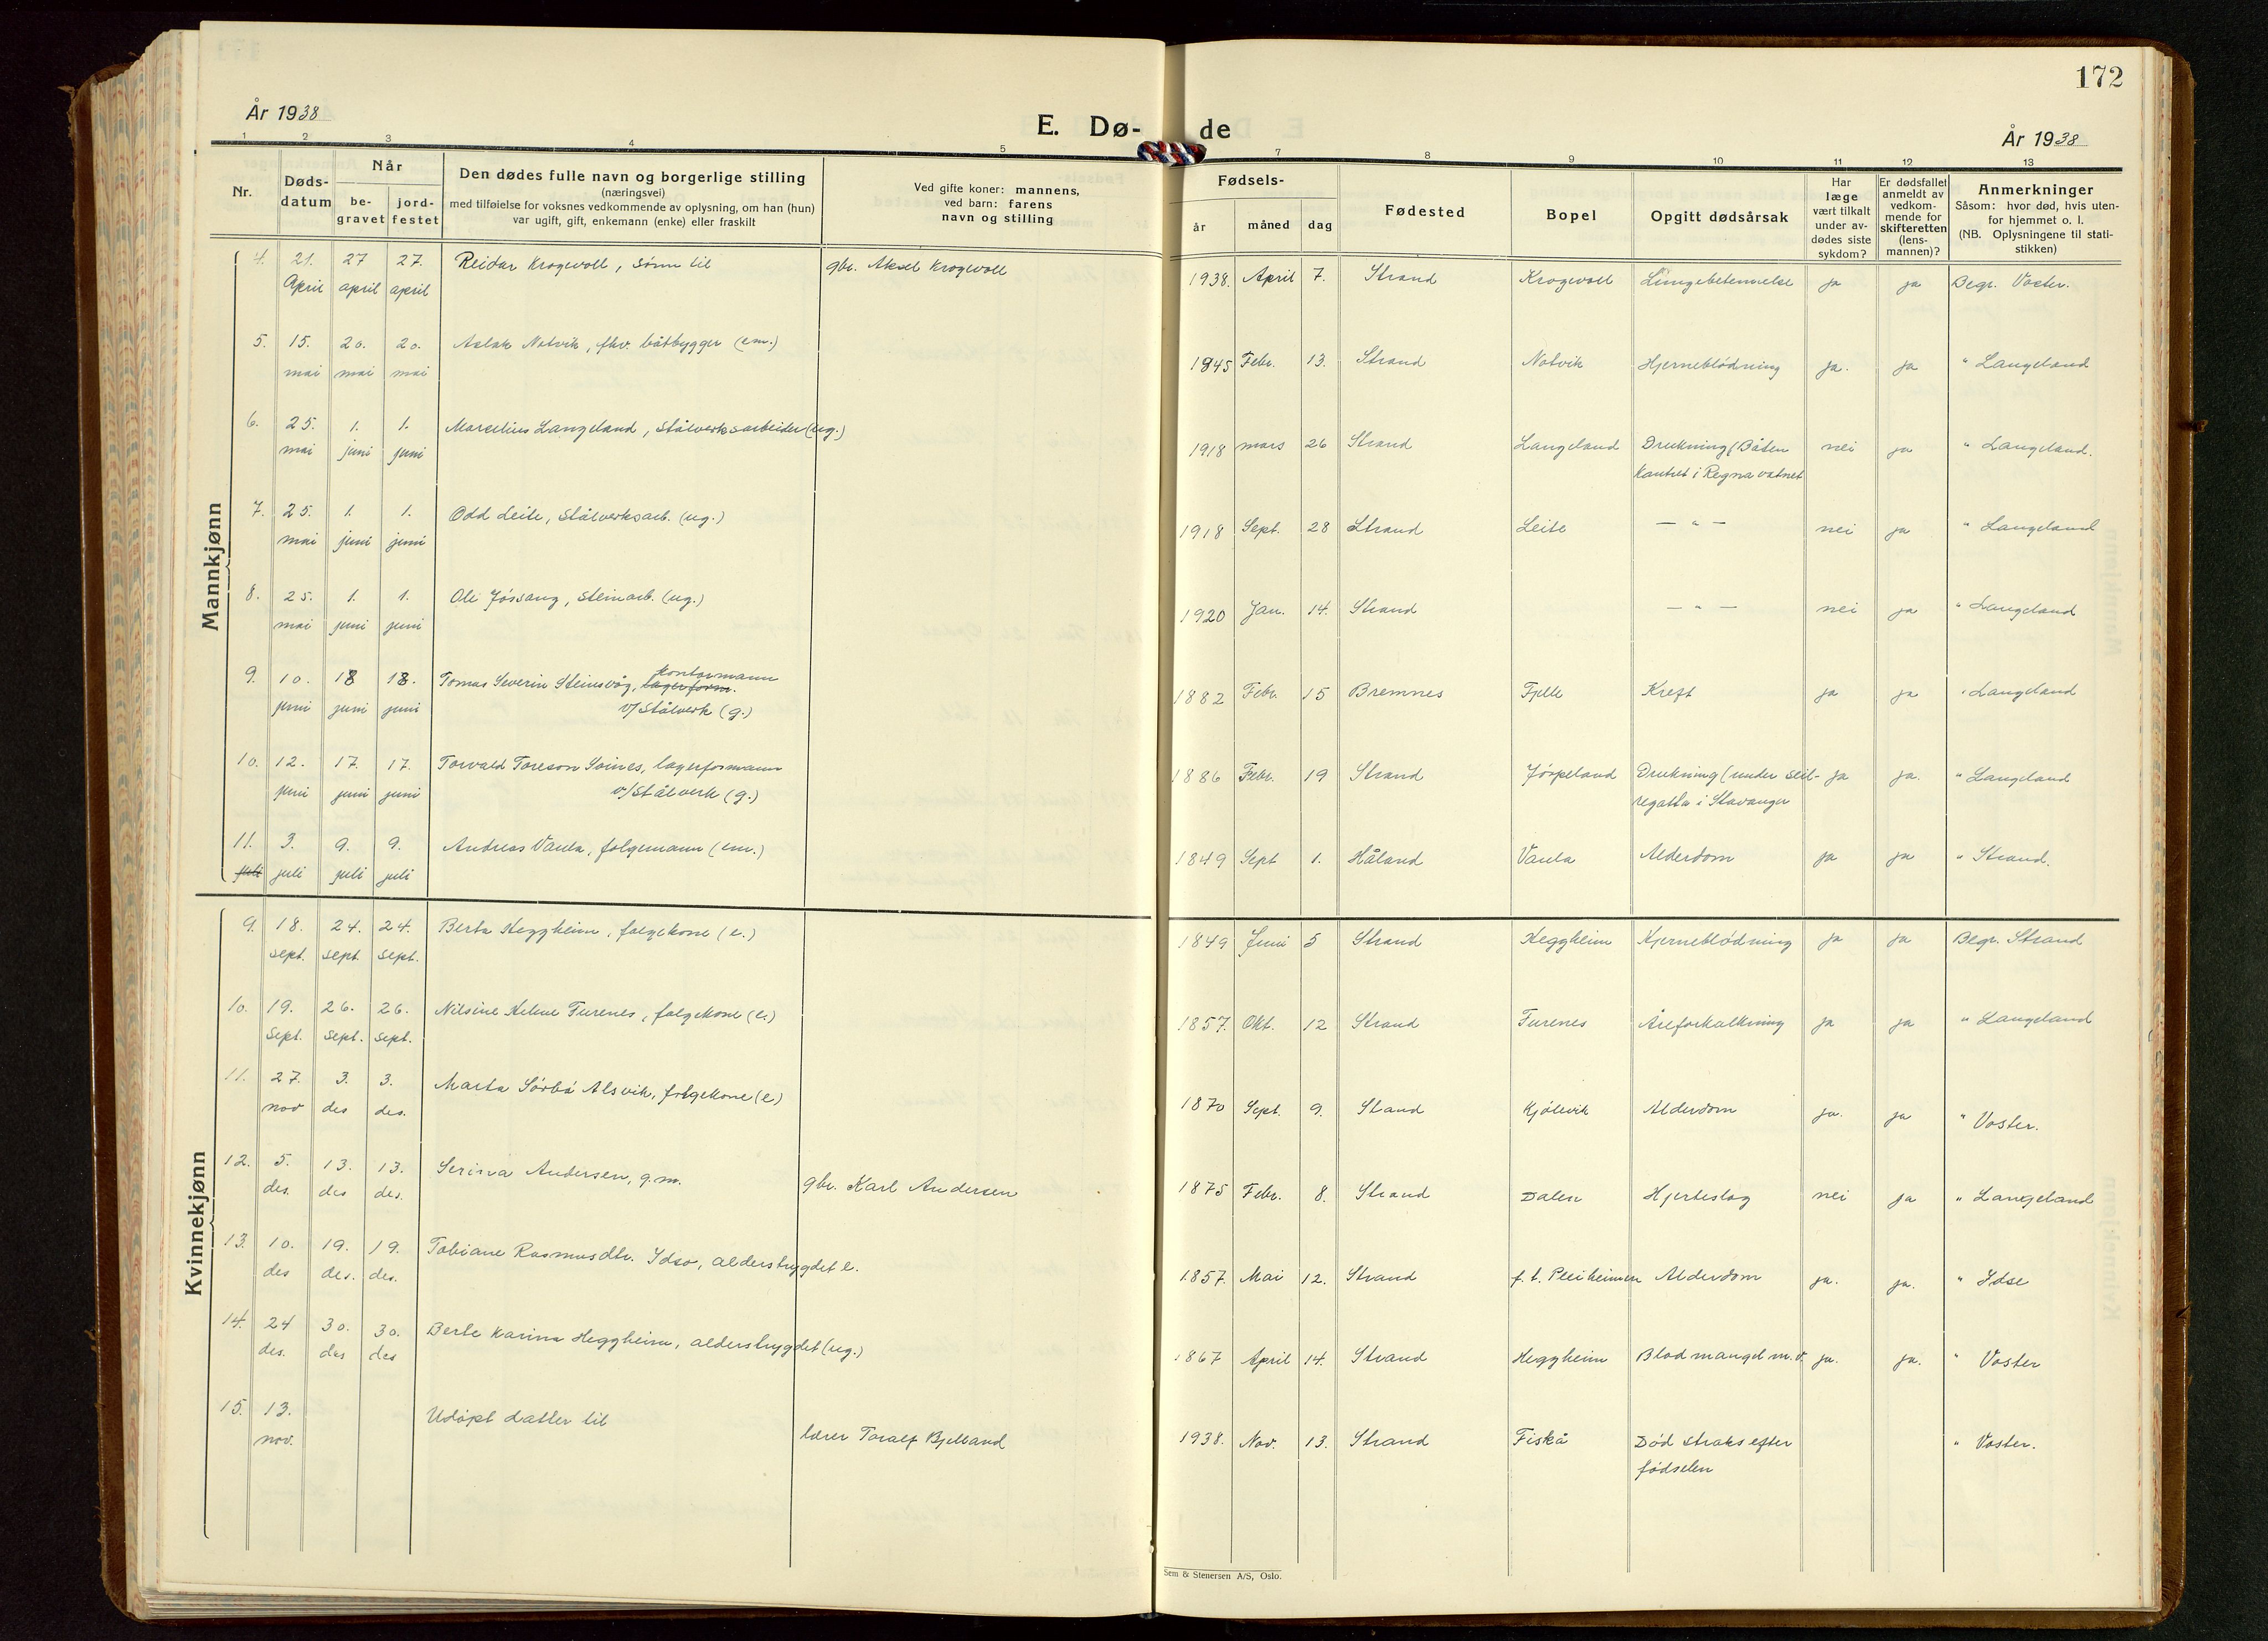 172
År 1938
E. Dø- de
År 1938
1 2 3 4 5 7 8 9 10 11 12 13
Nr.
Døds-
datum
Når
be-
gravet
jord-
festet
Den dødes fulle navn og borgerlige stilling
(næringsvei)
med tilføielse for voksnes vedkommende av oplysning, om han (hun)
var ugift, gift, enkemann (enke) eller fraskilt
Ved gifte koner: mannens,
ved barn: farens
navn og stilling
Fødsels-
år
måned
dag
Fødested
Bopel
Opgitt dødsårsak
Har
læge
vært tilkalt
under av-
dødes siste
sykdom?
Er dødsfallet
anmeldt av
vedkom-
mende for
skifteretten
(lens-
mannen)?
Anmerkninger
Såsom: hvor død, hvis uten-
for hjemmet o. l.
(NB. Oplysningene til stati-
stikken)
Mannkjønn
4. 21. 27 27. Reidar Krogevoll, sønn til gbr. Aksel Krogevoll 1938. April 7. Strand Krogevoll Lungebetennelse ja ja Begr. Voster.
April april april
5. 15. 20. 20. Aslak Notvik, fhv. båtbygger (em.) 1845 Febr. 13. Strand Notvik Hjerneblödning ja. ja " Langeland
mai mai mai
6. 25. 1. 1. Marselius Langeland, Stålverksarbeider (ug.) 1918 mars 26 Strand Langeland Drukning (Båten nei ja " Langeland.
mai juni juni kantret i Regnavatnet
7. 25. 1. 1. Odd Leite, Stålverksarb. (ug.) 1918 Sept. 28 Strand Leite — " — nei ja " Langeland
mai juni juni
8. 25. 1. 1. Ole Jössang, Steinarb. (ug.) 1920 Jan. 14. Strand — " — nei ja " Langeland
mai juni juni
9. 10. 18 18. Tomas Severin Steinsvåg, lagerform. kontormann 1882 Febr. 15 Bremnes Fjelle Kreft ja ja " Langeland
juni juni juni v/ Stålverk (g.)
10. 12. 17. 17. Torvald Toreson Soines, lagerformann 1886 Febr. 19 Strand Jörpeland Drukning (under seil- ja ja. " Langeland
juni juni juni v./Stålverk (g.) regatta i Stavanger
11. 3. 9. 9. Andreas Vaula, folgemann (em.) 1849 Sept 1. Håland Vaula Alderdom ja ja " Strand.
juli juli juli juli
Kvinnekjønn
9. 18. 24. 24. Berta Heggheim, folgekone (e.) 1849 Juni 5 Strand Heggheim Hjerneblödning ja ja Begr. Strand
sept. sept. sept.
10. 19. 26. 26. Nilsine Helene Furenes, folgekone (e.) 1857. Okt. 12 Strand Furenes Åreforkalkning ja ja " Langeland
sept. sept. sept.
11. 27. 3. 3. Marta Sörbö Alsvik, folgekone (e.) 1870 Sept. 9. Stand Kjölevik Alderdom ja. ja " Voster.
nov des des.
12. 5. 13. 13. Serina Andersen, g.m. gbr. Karl Andersen 1875 Febr. 8. Strand Dalen Hjerteslag nei ja " Langeland
des. des des.
13. 10. 19. 19. Tobiane Rasmusdtr. Idso, alderstrygdet e. 1857. Mai 12. Strand f. t. Pleiheimen Alderdom ja. ja. " Idse
des des. des.
14. 24 30. 30. Berte Karina Heggheim, alderstrygdet (ug.) 1867 April 14. Strand Heggheim Blodmangel m.v. ja. ja. " Voster
des. des des
15. 13. Udöpt datter til lærer Toralf Bjelland 1938. Nov. 13. Strand Fiskå Död straks efter " Voster.
nov. födselen
Sem & Stenersen A/S, Oslo.